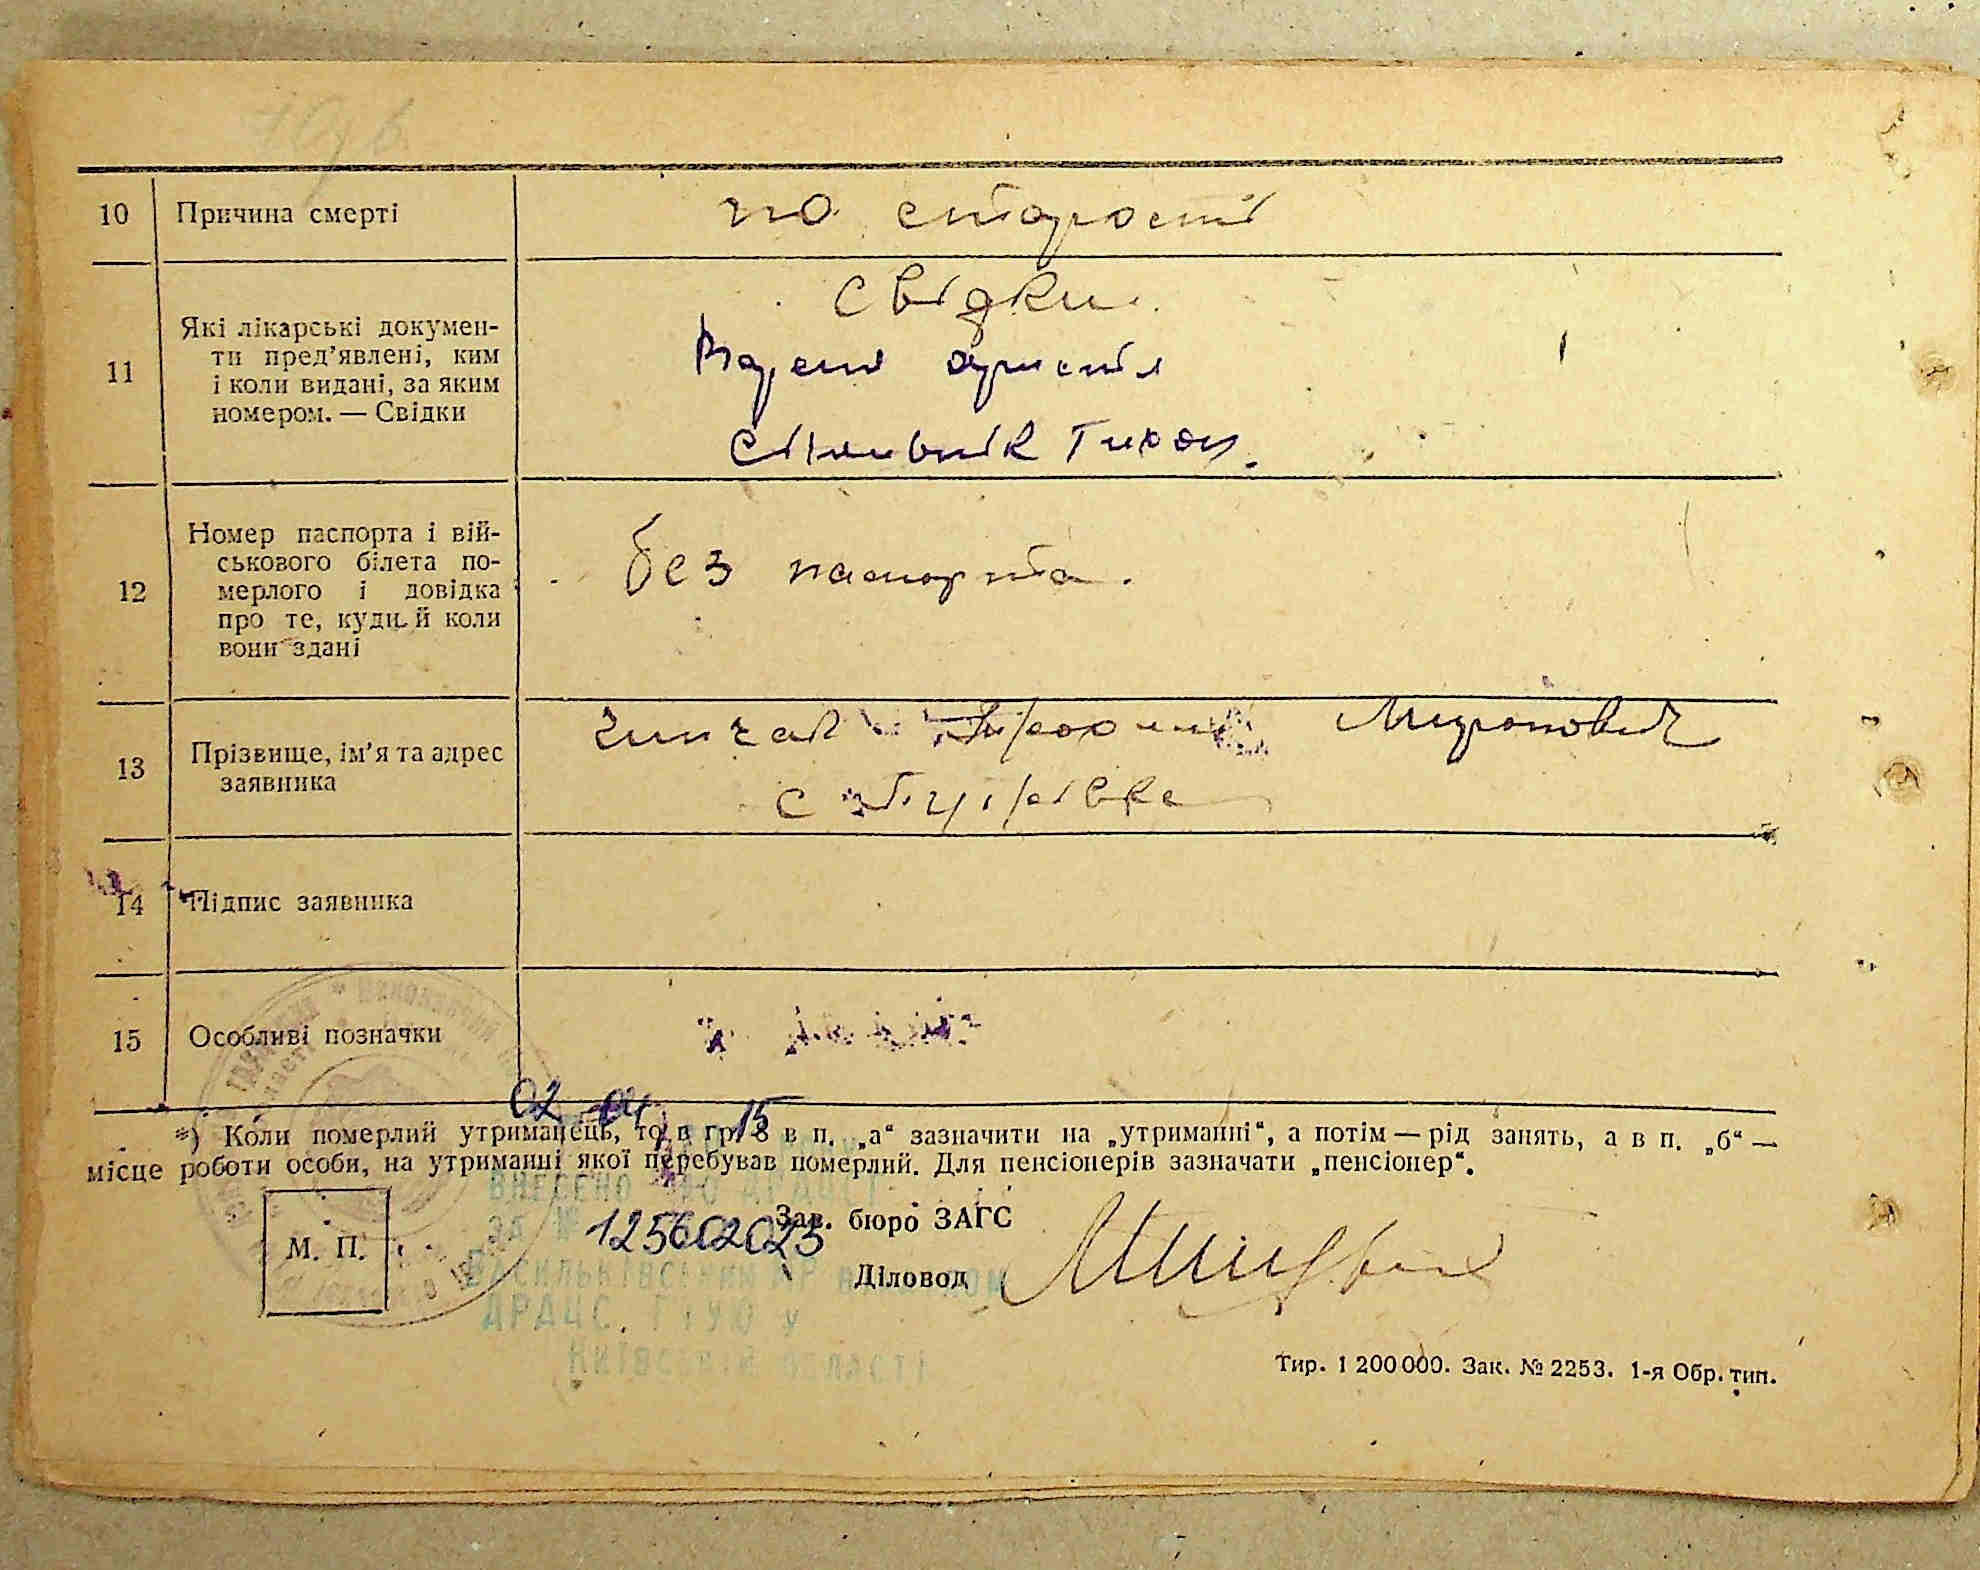 10 Причина смерті по старості
11 Які лікарські докумен-
ти пред’явлені, ким
і коли видані, за яким
номером. — Свідки
свідки
Тихон
12 Номер паспорта і вій-
ськового білета по-
мерлого і довідка
про те, куди й коли
вони здані
без паспорта.
13 Прізвище, ім’я та адрес
заявника
Миронович
с
14 Підпис заявника
15 Особливі позначки
02 04 15
*) Коли померлий утриманець, то в гр. 8 в п. „а“ зазначити на „утриманні“, а потім — рід занять, а в п. „б“ —
місце роботи особи, на утриманні якої перебував померлий. Для пенсіонерів зазначати „пенсіонер“.
ВНЕСЕНО ДО ДРАЦСГ
за № 125602023
Зав. бюро ЗАГС
М. П.
Діловод
Васильківським МР відділом
ДРАЦС ГТУЮ у
Київській області
Тир. 1 200 000. Зак. № 2253. 1-я Обр. тип.